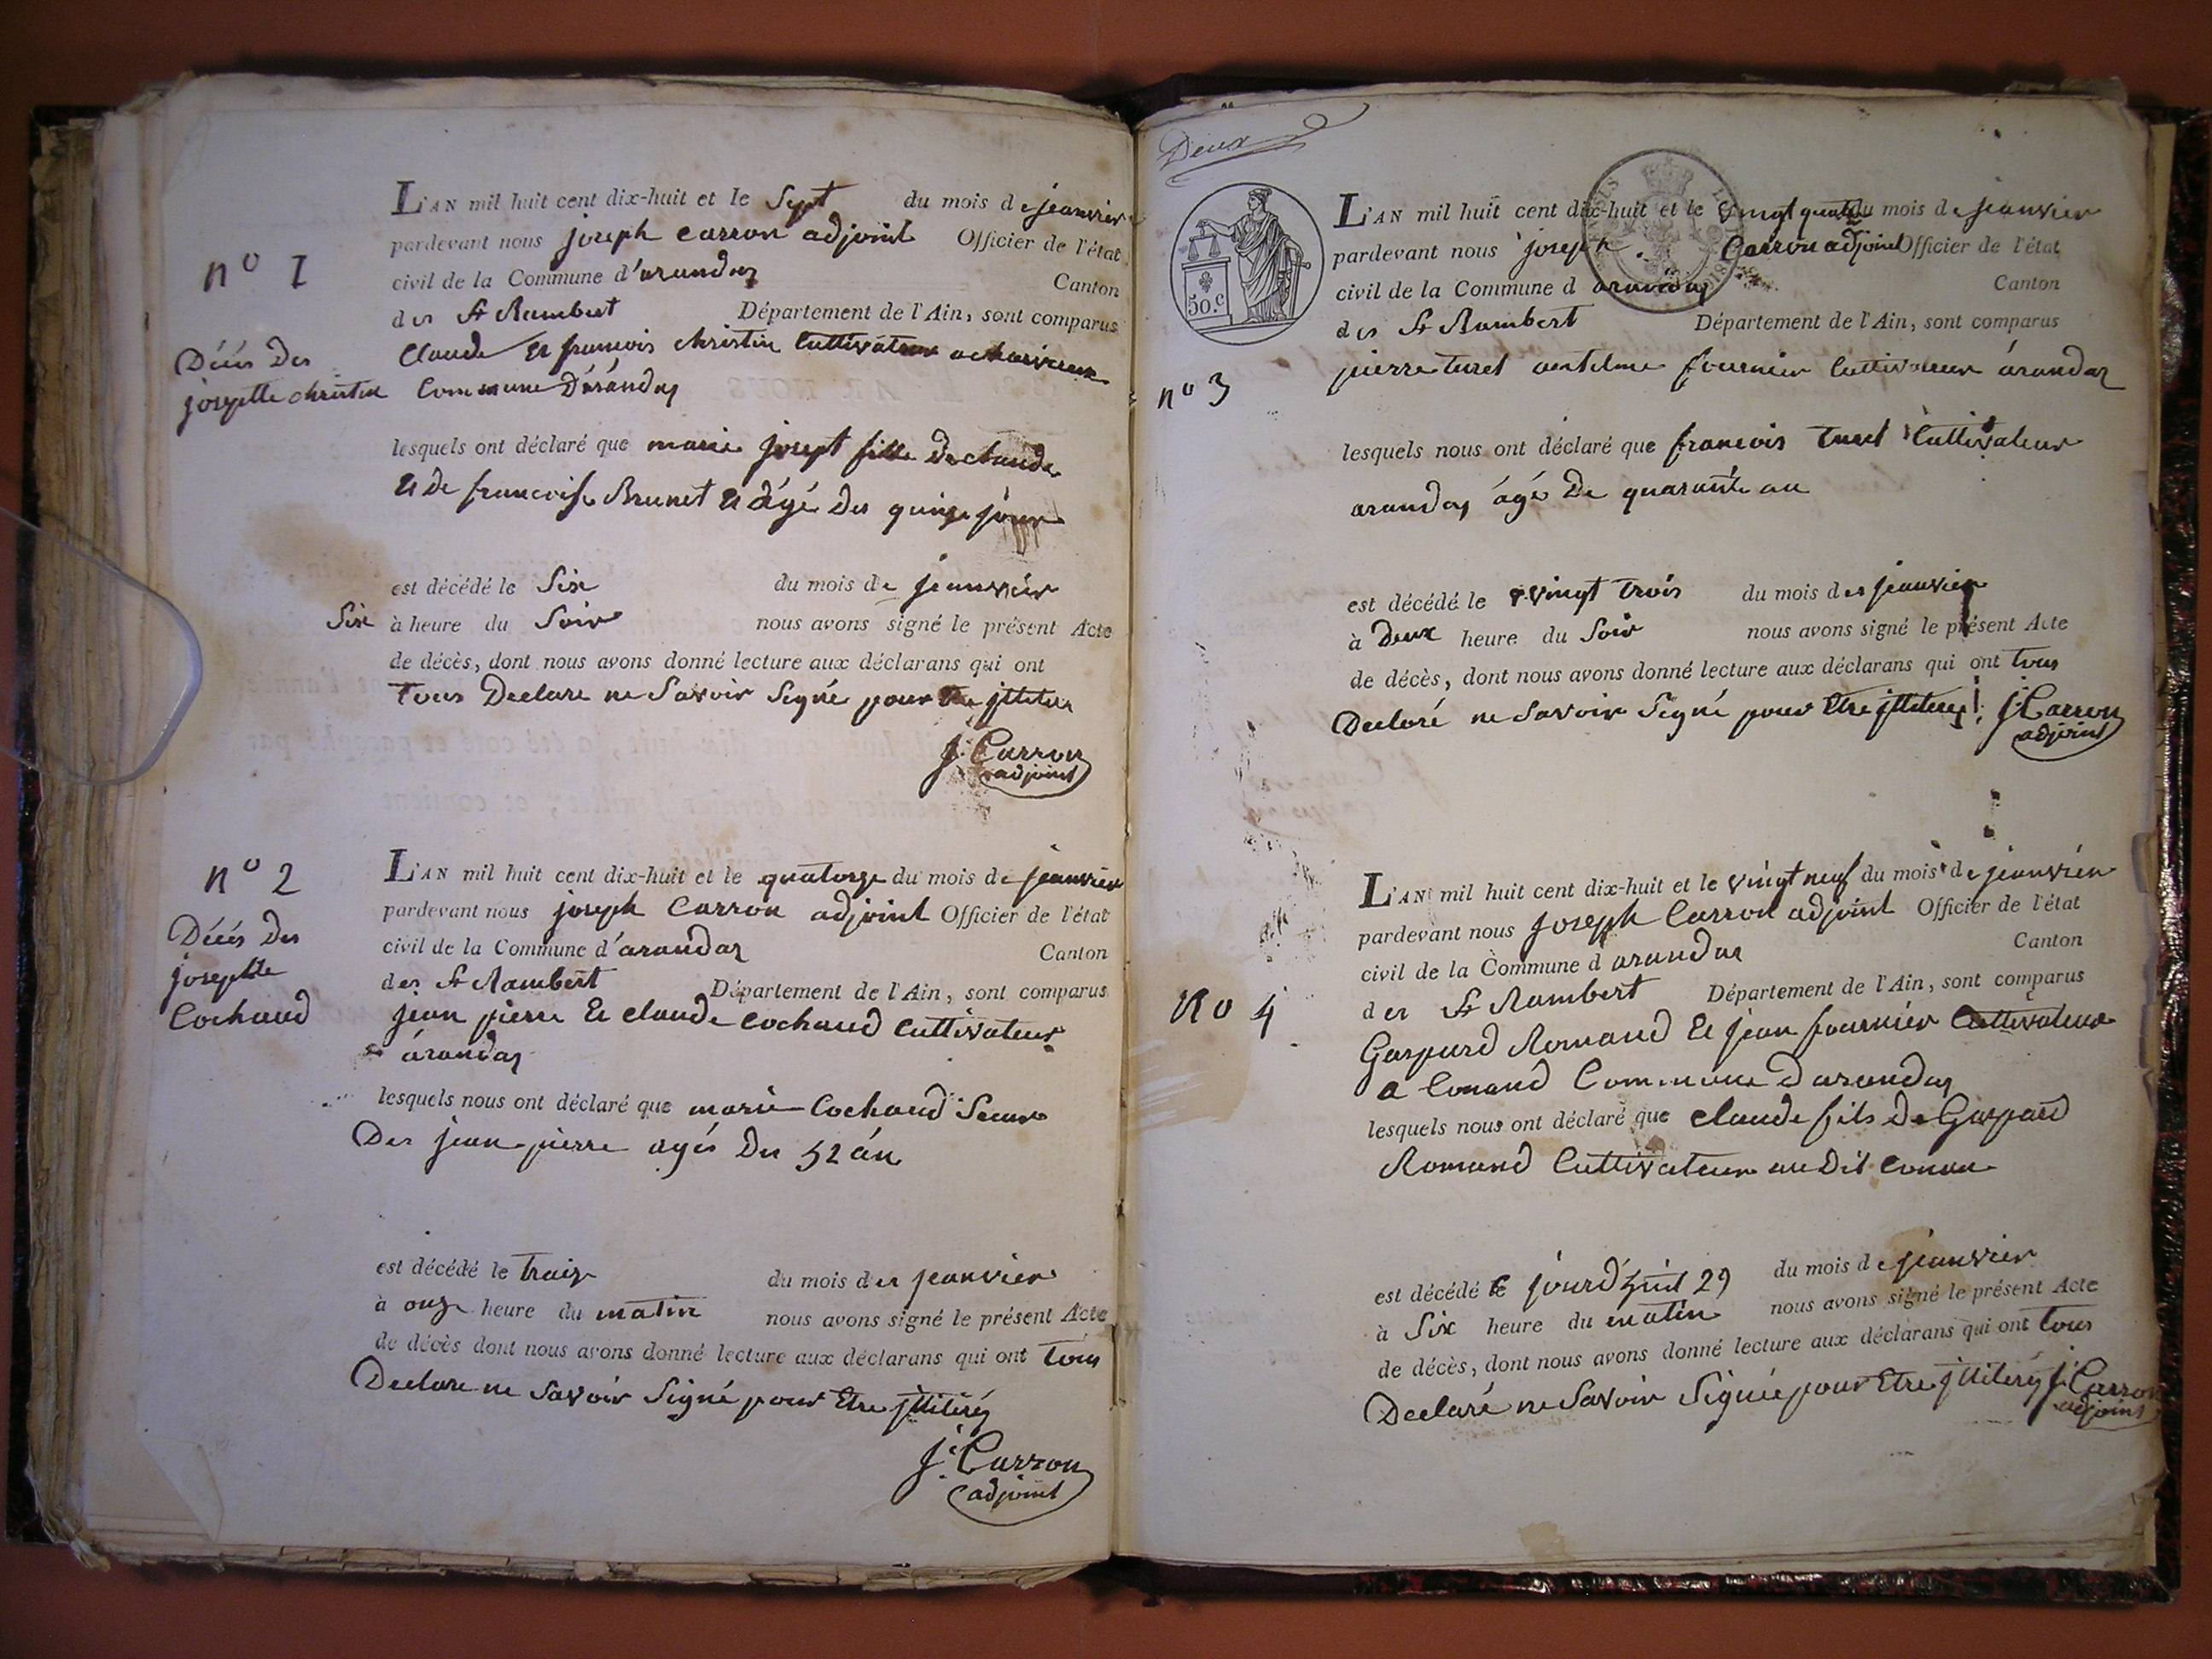 n° 1
Décés Des
josephtte christin
L'AN mil huit cent dix-huit et le Sept du mois de jeanvier
pardevant nous joseph carron adjoint Officier de l'état
civil de la Commune d'arandas Canton
des St Rambert Département de l'Ain, sont comparus
Claude Et francois christin Cuttivateur
Commune D'arandas
lesquels ont déclaré que marie josept fille De claude
Et de francoise Brunet Et âgé Des quinze jour
est décédé le Six du mois de jeanvier
Six à heure du Soir nous avons signé le présent Acte
de décès, dont nous avons donné lecture aux déclarans qui ont
tous Declare ne Savoir Signé pour
J. Carron
adjoint
n° 2
Décés Des
josephte
Cochaud
L'AN mil huit cent dix-huit et le quatorze du mois de jeanvier
pardevant nous joseph Carron adjoint Officier de l'état
civil de la Commune d'arandas Canton
des St Rambert Département de l'Ain, sont comparus
jean pierre Et claude cochaud Cuttivateur
arandas
lesquels nous ont déclaré que marie Cochaud Seeur
Des jean pierre agés Des 52 án
est décédé le traize du mois des jeanvier
à onze heure du matin nous avons signé le présent Acte
de décès dont nous avons donné lecture aux déclarans qui ont tous
Declare ne Savoir Signé pour Etre jlliteréz
J. Carron
adjoint
Deux
50.c
n° 3
L'AN mil huit cent dix-huit et le vingt quatre du mois de jeanvier
pardevant nous joseph Carron adjoint Officier de l'état
civil de la Commune d arandas Canton
des St Rambert Département de l'Ain, sont comparus
pierre turet antelme fournier Cuttivateur árandaz
lesquels nous ont déclaré que francois turet Cuttivateur
arandas ágé De quarante an
est décédé le vingt trois du mois des jeanvier
à Deux heure du Soir nous avons signé le présent Acte
de décès, dont nous avons donné lecture aux déclarans qui ont tous
Declaré ne Savoir Signé pour Etre jlliteréz J. Carron
adjoint
No 4
L'AN mil huit cent dix-huit et le vingt neuf du mois de jeanvier
pardevant nous Joseph Carron adjoint Officier de l'état
civil de la Commune d arandas Canton
des St Rambert Département de l'Ain, sont comparus
Gaspard Romand Et jean fournier Cuttivateur
a Conand Commune d arandas
lesquels nous ont déclaré que claude fils De Gaspard
Romand Cuttivateur au Dit Conan
est décédé le jourd'huit 29 du mois de jeanvier
à Six heure du matin nous avons signé le présent Acte
de décès, dont nous avons donné lecture aux déclarans qui ont tous
Declaré ne Savoir Signée pour Etre jlliteréz J. Carron
adjoint